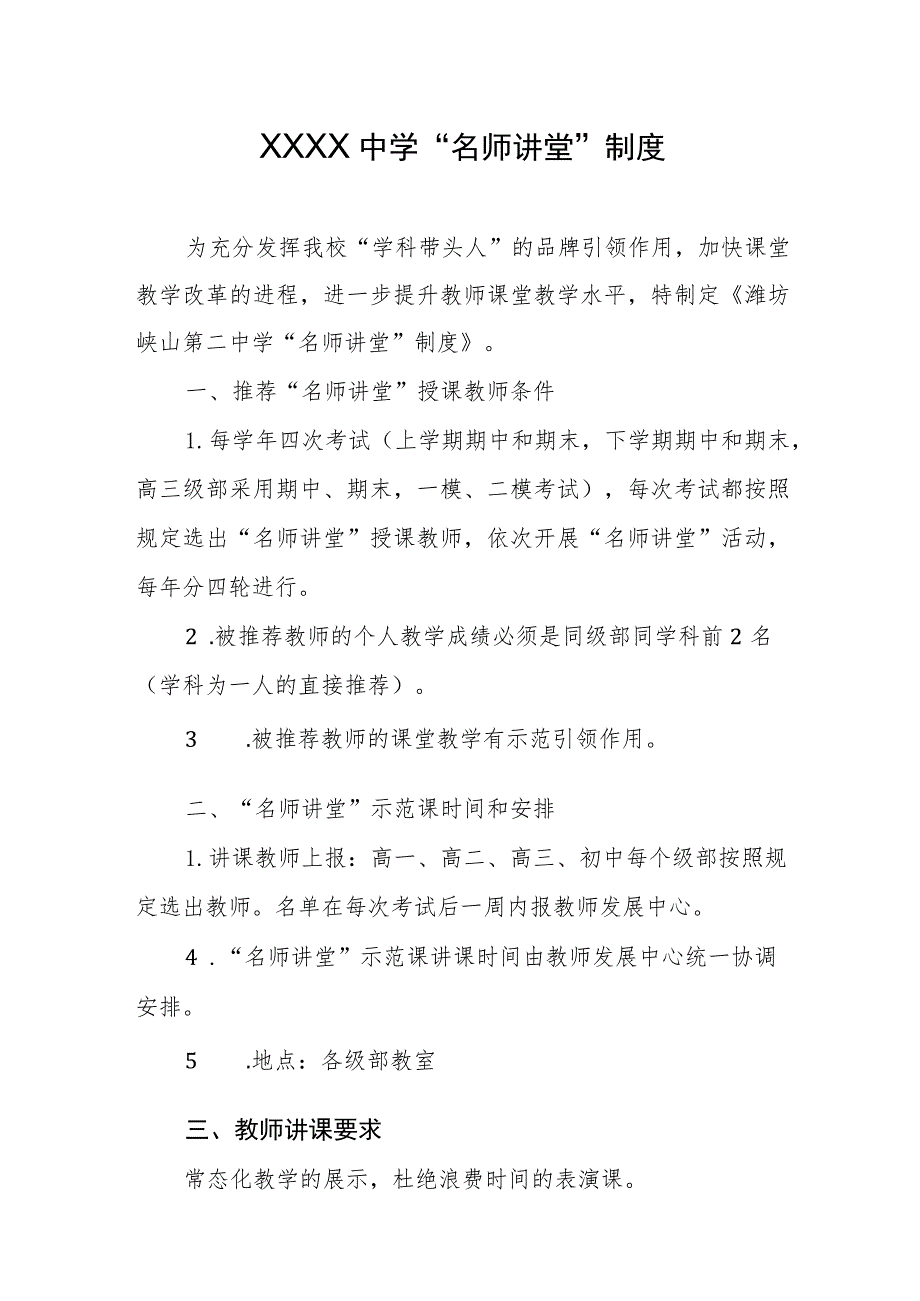 XXXX 中学“名师讲堂”制度
为充分发挥我校“学科带头人”的品牌引领作用，加快课堂
教学改革的进程，进一步提升教师课堂教学水平，特制定《潍坊
峡山第二中学“名师讲堂”制度》。
一、推荐“名师讲堂”授课教师条件
1. 每学年四次考试（上学期期中和期末，下学期期中和期末，
高三级部采用期中、期末，一模、二模考试），每次考试都按照
规定选出“名师讲堂”授课教师，依次开展“名师讲堂”活动，
每年分四轮进行。
2 .被推荐教师的个人教学成绩必须是同级部同学科前 2 名
（学科为一人的直接推荐）。
3 .被推荐教师的课堂教学有示范引领作用。
二、“名师讲堂”示范课时间和安排
1. 讲课教师上报：高一、高二、高三、初中每个级部按照规
定选出教师。名单在每次考试后一周内报教师发展中心。
4 .“名师讲堂”示范课讲课时间由教师发展中心统一协调
安排。
5 .地点：各级部教室
三、教师讲课要求
常态化教学的展示，杜绝浪费时间的表演课。